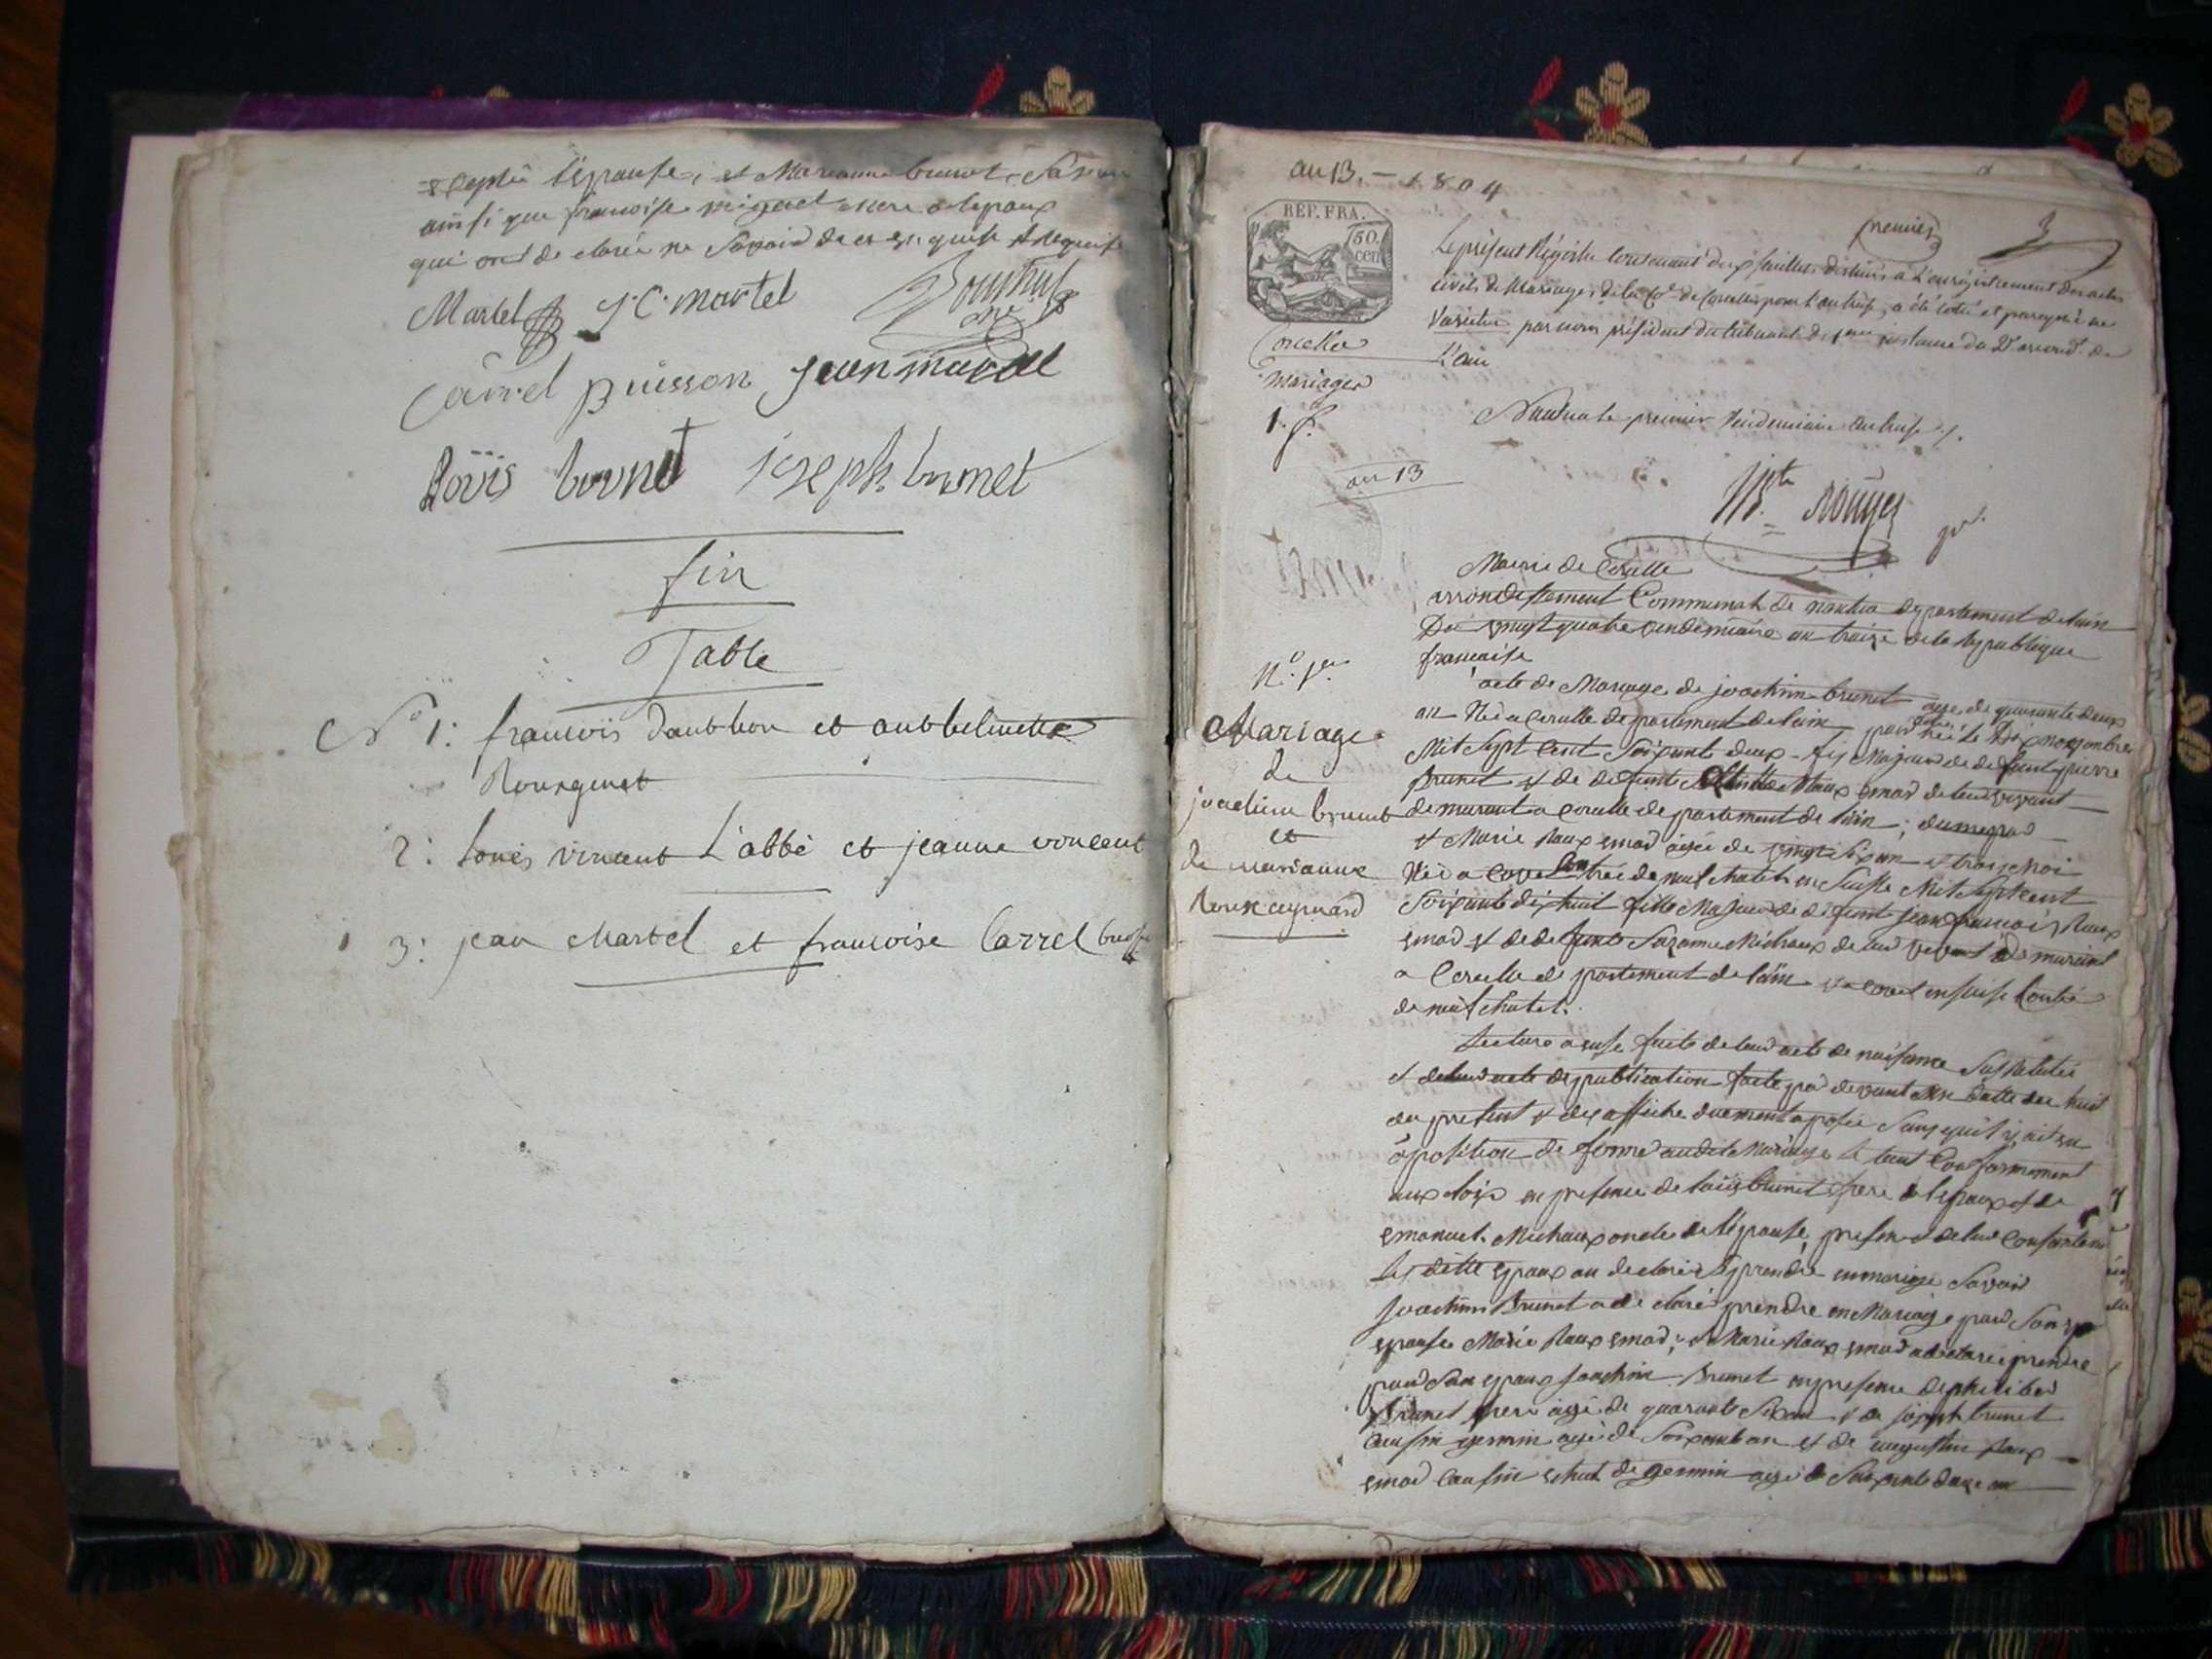 excepté l'épouse, et Marianne brunet sa mere
ainsi que francoise migniet mere de lepoux
qui ont declaré ne savoir de ce enquise et requise
Martel J C martel
Carrel puisson Jean martel
Loüis brunet joseph brunet
fin
Table
N° 1: francois Daubbon et anthelmette
Rougemet
2: Louis vincent L'abbé et jeanne vincent
3: jean Martel et francoise Carrel
an 13. - 1804
REP. FRA.
50.
cen
premier
Le présent Régistre contenant dix feuillets destinés à l'enregistrement des actes
civils de Mariages de la Cne de Corcelles pour l'an treize, a été cotté et paraphé ne
varietur par nous président du tribunal de 1ere instance du 2e arrond.t de
L'ain
Corcelles
Mariages
1. f.
Nantua le premier Vendemiaire an treize
an 13
Mairie de Corcelle
arrondissement Communal de nantua departement de lain
Du vingt quatre vendemiaire an traize de la Republique
francaise
N.° 1er
acte de Mariage de joachim brunet age de quarante deux
an Née a Corcelle departement de lain
Mariage
de
joachim brunet
et
de marianne
Roux aymard
Mil Sept Cent Soixante deux fis Majeur de defunt pierre
Brunet et de defunte
demurant a Corcelle departement de lain;
et Marie Roux emard agée de vingt six an et trois Moi
Née a Couvet Contrée de neuf chatel en Suisse Mil Sept Cent
Soixante dix huit fille Majeur de defunt jean francois Roux
emard et de defunte Suzanne Michaux de leur vivant demurant
a Corcelle departement de lain et a Couvet en suise Contré
de neuf chatel.
Lecture a eusse faite de leur acte de naissance
et de leur acte de publication faite par devant
du present et des affiche duement aposée Sans quil i ait eu
oposition de formé audit Mariage le tout Conformement
aux loix en presence de loüis brunet frere de lepoux et de
emanuel Michaux oncle de lépouse
les ditte epoux on declarér se prendre en mariage Savoir
joachim Brunet a declaré prendre en Mariage pour son
epouse Marie Roux emard; et Marie Roux emard a declaré prendre
pour son epoux joachim Brunet en presence de philiber
Brunet frere agé de quarante six an et de joseph brunet
Cousin germin agé de Soixante an et de augustin Roux
emard Cousin de germin agé de Soixante douze an